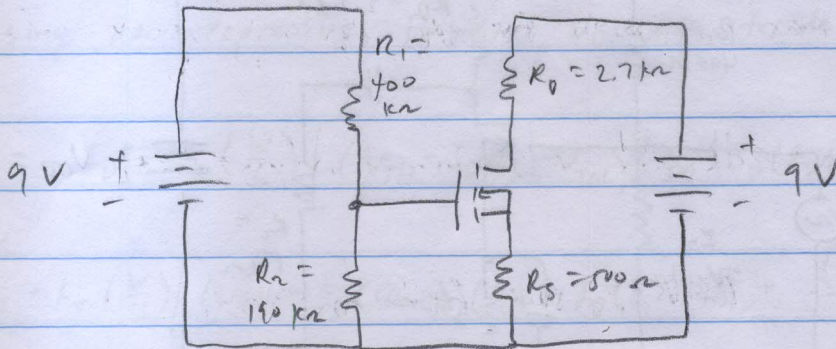 R₁ =
400
kΩ
R_D = 2.7 kΩ
9 V
+
-
+
-
9 V
R₂ =
190 kΩ
R_S = 500 Ω